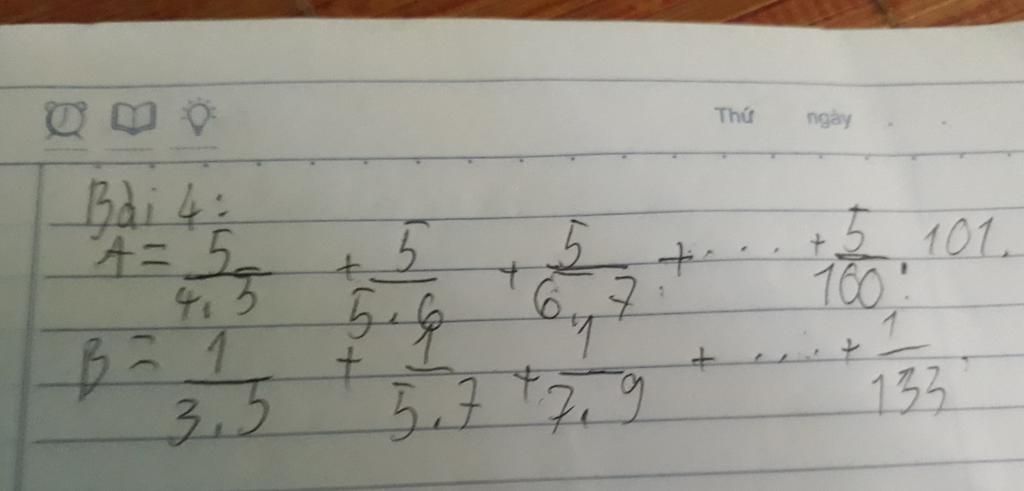 Thứ ngày
Bài 4:
A = 5/4.5 + 5/5.6 + 5/6.7 + .... + 5/100.101.
B = 1/3.5 + 1/5.7 + 1/7.9 + .... + 1/133.